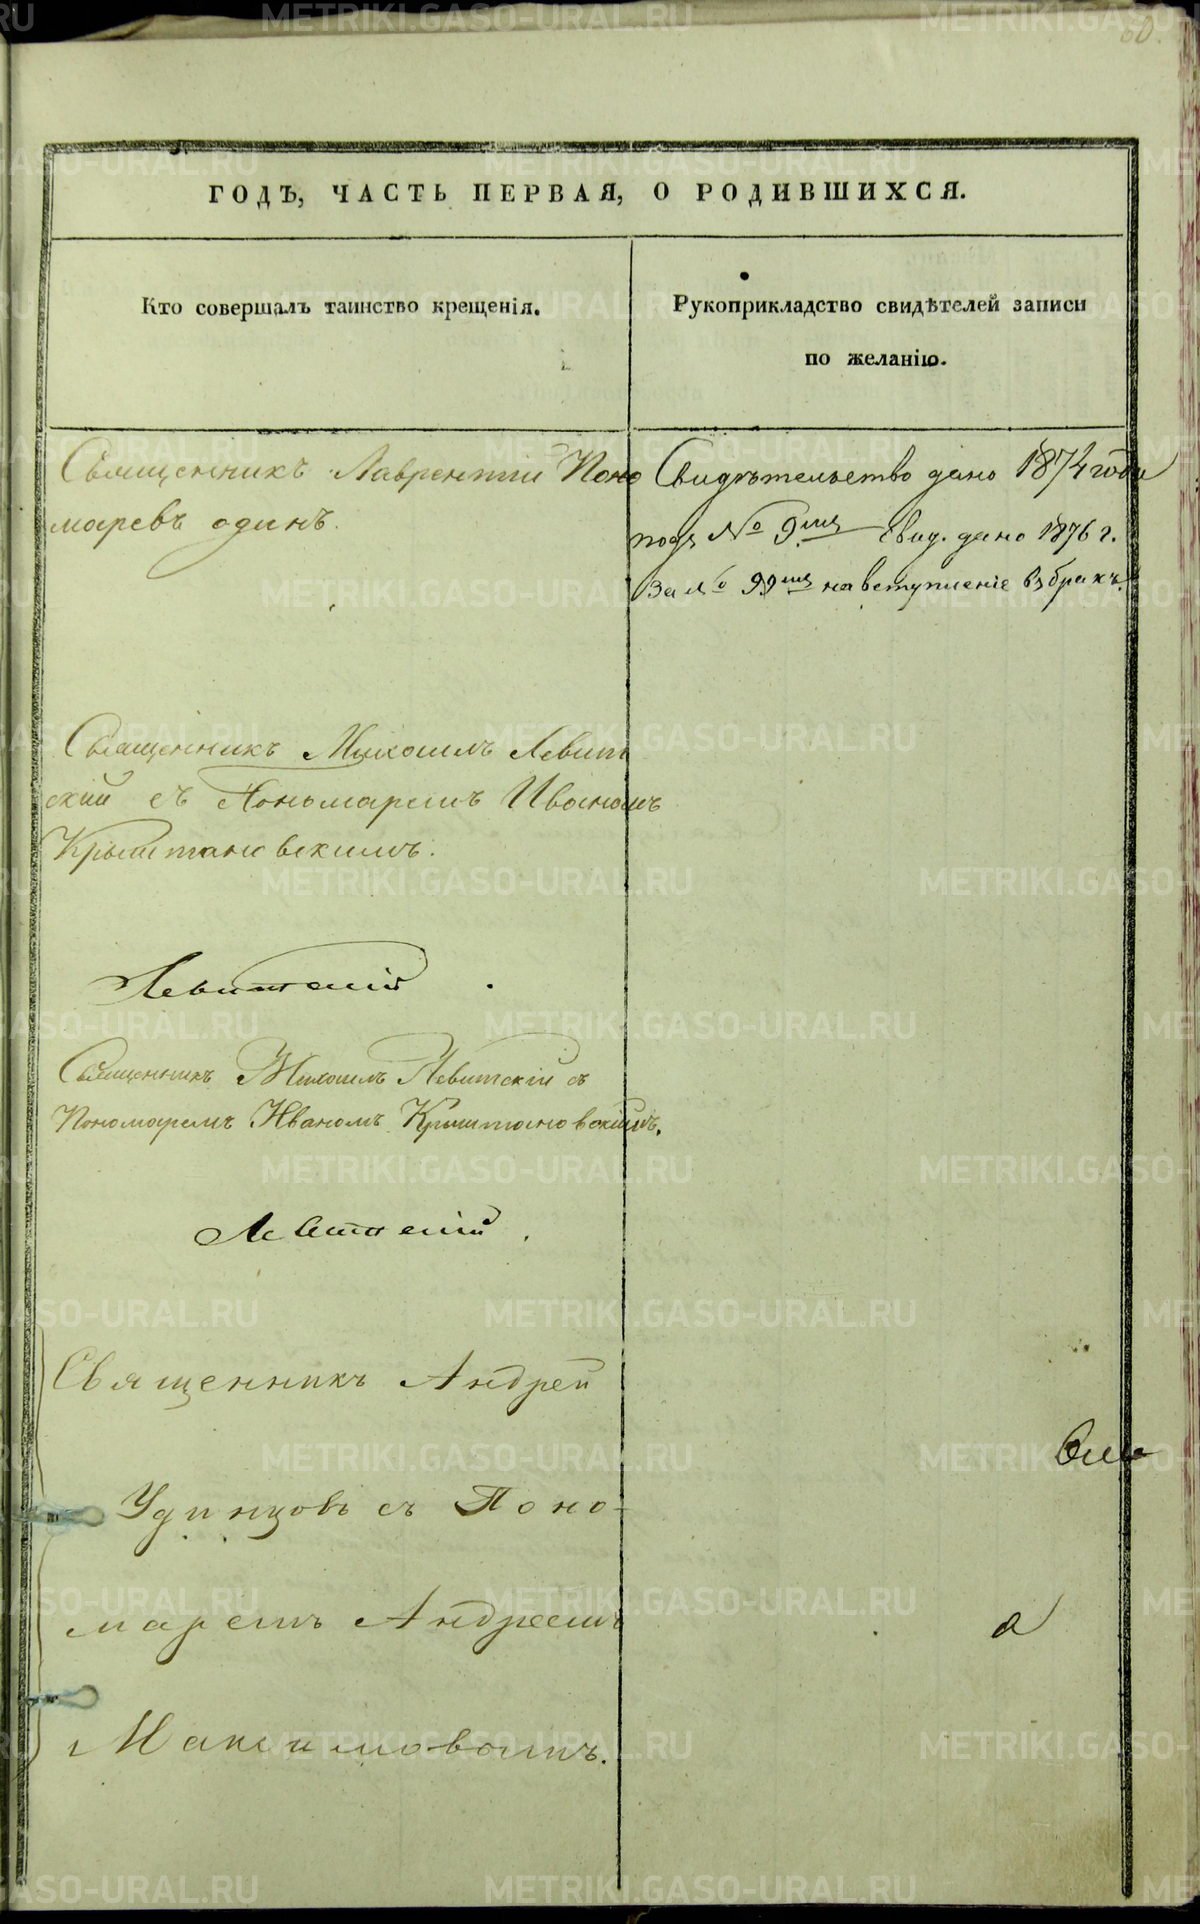 60.
ГОДЪ, ЧАСТЬ ПЕРВАЯ, О РОДИВШИХСЯ.
Кто совершалъ таинство крещенія.
Рукоприкладство свидѣтелей записи
по желанію.
Священникъ Лаврентій Поно
маревъ одинъ.
Свидѣтельство дано 1874 года
подъ № 9мъ Свид. дано 1876 г.
За № 99мъ на вступленіе въ бракъ.
Священникъ Михаилъ Левит
скій съ Пономаремъ Иваномъ
Крыштановскимъ.
Левитскій
Священникъ Михаилъ Левитскій съ
Пономаремъ Иваномъ Крыштановскимъ.
Левитскій.
Священникъ Андрей
Удинцовъ съ Поно-
маремъ Андреемъ
Максимовымъ.
METRIKI.GASO-URAL.RU